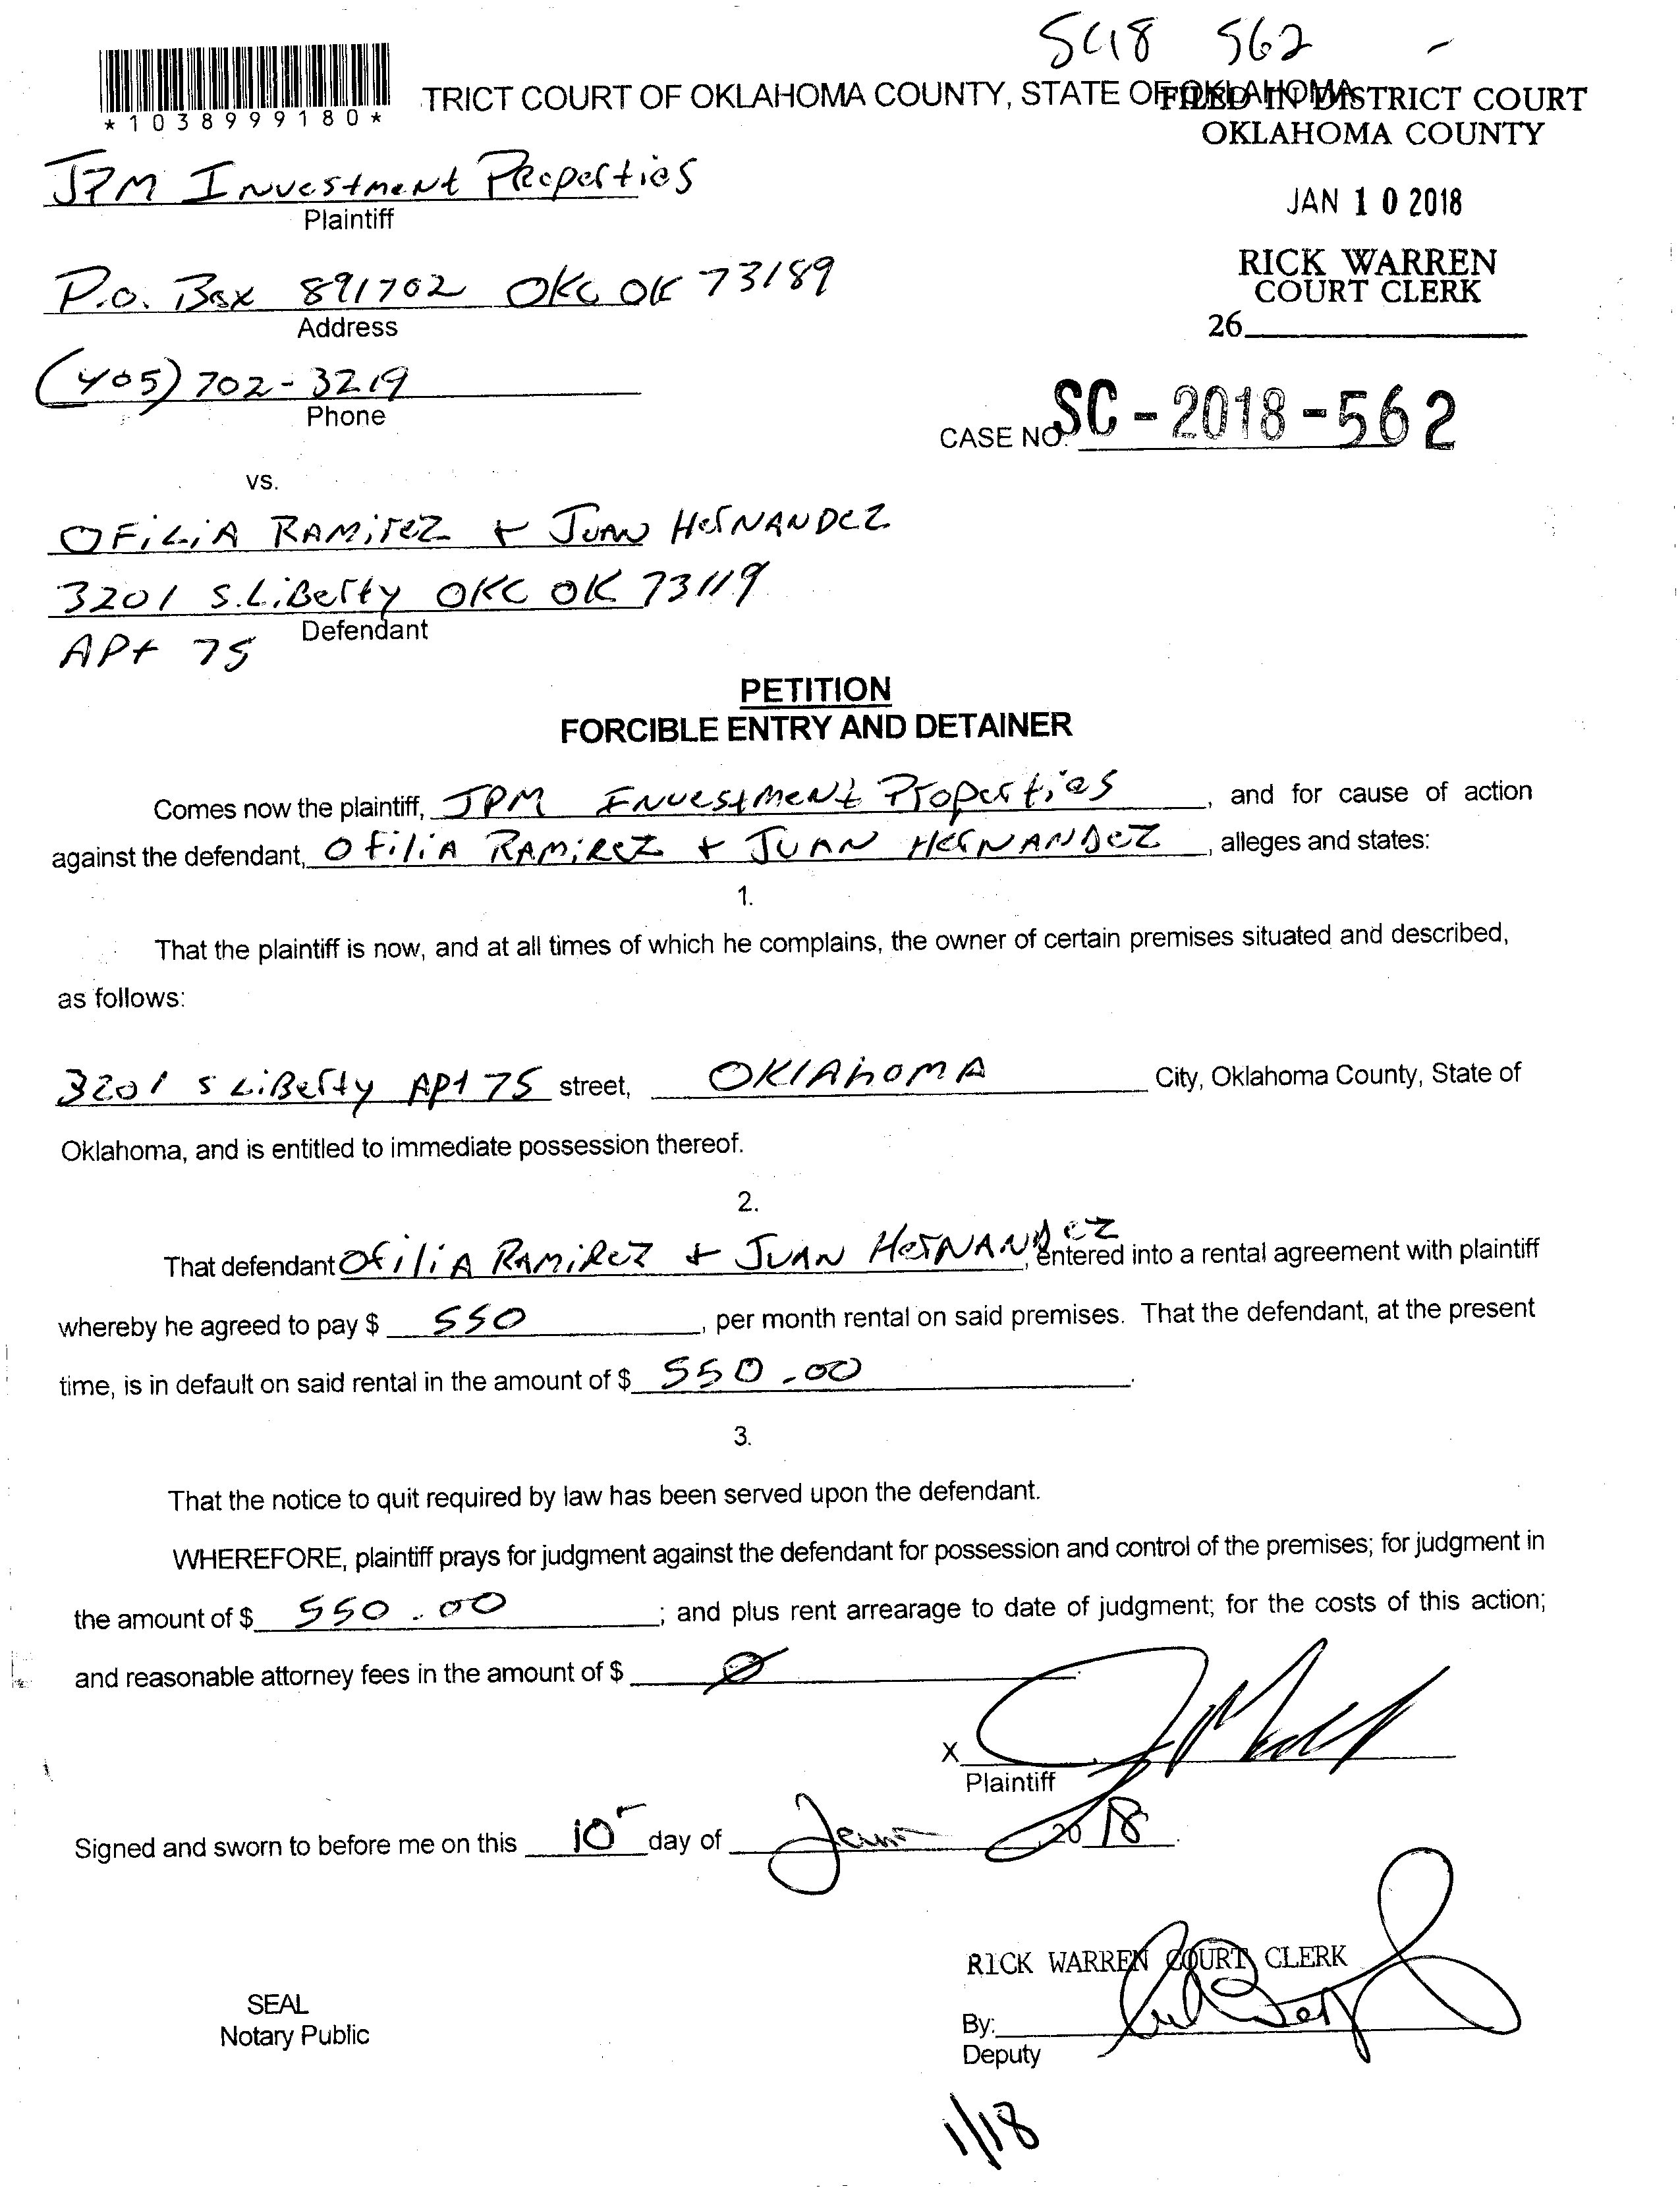 SC18 562 -
*1038999180*
TRICT COURT OF OKLAHOMA COUNTY, STATE OF OKLAHOMA
FILED IN DISTRICT COURT
OKLAHOMA COUNTY
JPM Investment Properties
Plaintiff
JAN 10 2018
P.O. Box 891702 OKC OK 73189
Address
RICK WARREN
COURT CLERK
26
(405) 702-3219
Phone
CASE NO. SC-2018-562
vs.
OFiLiA RAMirez + JUAN HerNANDEZ
3201 S. LiBerty OKC OK 73119
Defendant
APt 75
PETITION
FORCIBLE ENTRY AND DETAINER
Comes now the plaintiff, JPM Investment Properties, and for cause of action
against the defendant, OfiliA RAMiREZ + JUAN HerNANDEZ, alleges and states:
1.
That the plaintiff is now, and at all times of which he complains, the owner of certain premises situated and described,
as follows:
3201 S LiBerty APt 75 street, OKlAhomA City, Oklahoma County, State of
Oklahoma, and is entitled to immediate possession thereof.
2.
That defendant OfiliA RAMiRez + JUAN HerNANDEZ, entered into a rental agreement with plaintiff
whereby he agreed to pay $ 550, per month rental on said premises. That the defendant, at the present
time, is in default on said rental in the amount of $ 550.00.
3.
That the notice to quit required by law has been served upon the defendant.
WHEREFORE, plaintiff prays for judgment against the defendant for possession and control of the premises; for judgment in
the amount of $ 550.00; and plus rent arrearage to date of judgment; for the costs of this action;
and reasonable attorney fees in the amount of $ Ø.
X
Plaintiff
Signed and sworn to before me on this 10 day of Jan, 20 18.
RICK WARREN COURT CLERK
SEAL
Notary Public
By:
Deputy
1/18